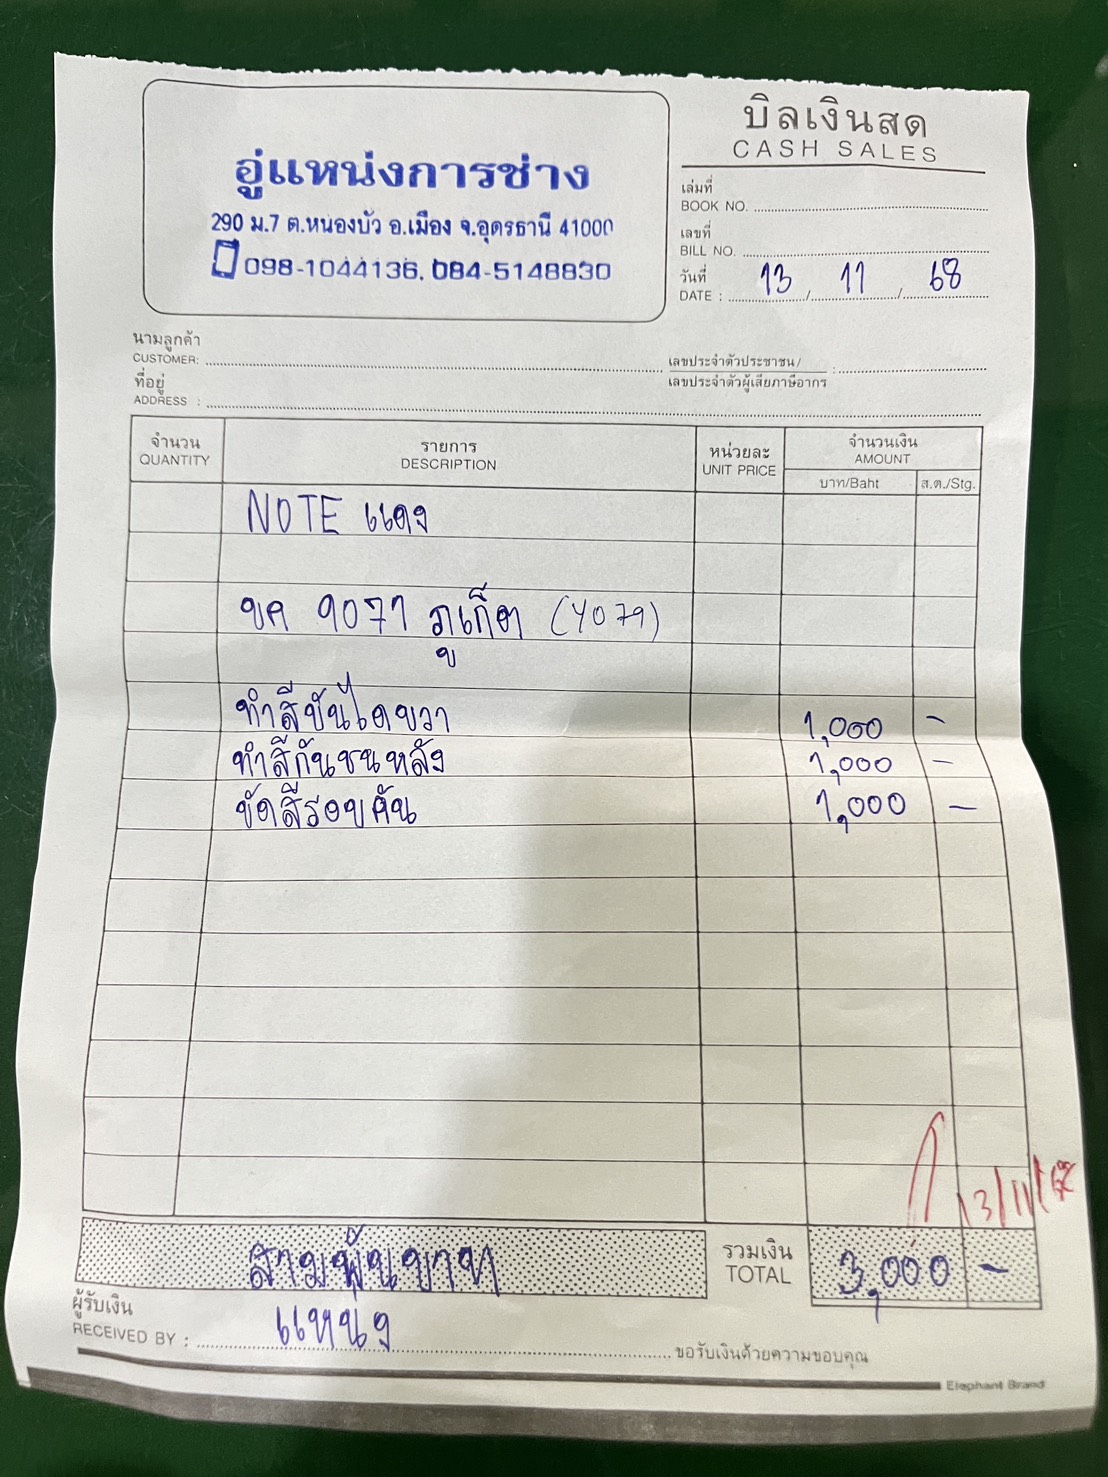 บิลเงินสด
CASH SALES
อู่แหน่งการช่าง
290 ม.7 ต.หนองบัว อ.เมือง จ.อุดรธานี 41000
098-1044136, 084-5148830
เล่มที่
BOOK NO.
เลขที่
BILL NO.
วันที่
DATE : 13 / 11 / 68
นามลูกค้า
CUSTOMER:
เลขประจำตัวประชาชน/ :
เลขประจำตัวผู้เสียภาษีอากร
ที่อยู่
ADDRESS :
จำนวน รายการ หน่วยละ จำนวนเงิน
QUANTITY DESCRIPTION UNIT PRICE AMOUNT
บาท/Baht ส.ต./Stg.
NOTE แดง
ขค 9071 ภูเก็ต (4079)
ข
ทำสีบันไดขวา 1,000 -
ทำสีกันชนหลัง 1,000 -
ขัดสีรอบคัน 1,000 -
13/11/68
สามพันบาท รวมเงิน 3,000 -
TOTAL
ผู้รับเงิน
RECEIVED BY : แหน่ง ขอรับเงินด้วยความขอบคุณ
Elephant Brand